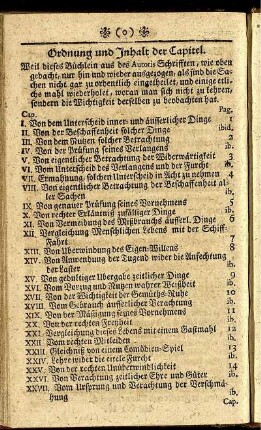 (o)
Ordnung und Inhalt der Capitel.
Weil dieses Büchlein aus des Autoris Schrifften, wie oben
gedacht, nur hin und wieder ausgezogen, als sind die Sa-
chen nicht gar zu ordentlich eingetheilet, und einige etli-
che mahl wiederholet, woran man sich nicht zu kehren,
sondern die Wichtigkeit derselben zu beobachten hat.
Cap. Pag.
I. Von dem Unterscheid inner- und äusserlicher Dinge 1
II. Von der Beschaffenheit solcher Dinge ibid.
III. Von dem Nutzen solcher Betrachtung 2
IV. Von der Prüfung seines Verlangens ib.
V. Von eigentlicher Betrachtung der Widerwärtigkeit 3
VI. Vom Unterscheid des Verlangens und der Furcht ib.
VII. Ermahnung, solchen Unterscheid in Acht zu nehmen 4
VIII. Von eigentlicher Betrachtung der Beschaffenheit al-
ler Sachen ib.
IX. Von genauer Prüfung seines Vornehmens 5
X. Von rechter Erkäntniß zufälliger Dinge ib.
XI. Von Vermeidung des Mißbrauchs äusserl. Dinge 6
XII. Vergleichung Menschlichen Lebens mit der Schiff-
Fahrt 7
XIII. Von Überwindung des Eigen-Willens 8
XIV. Von Anwendung der Tugend wider die Anfechtung
der Laster ib.
XV. Von gedultiger Übergabe zeitlicher Dinge 9
XVI. Vom Vorzug und Nutzen wahrer Weißheit ib.
XVII. Von der Wichtigkeit der Gemüths-Ruhe 10
XVIII. Vom Gebrauch äusserlicher Verachtung ib.
XIX. Von der Mäßigung seines Vornehmens 11
XX. Von der rechten Freyheit ib.
XXI. Vergleichung dieses Lebens mit einem Gastmahl 12
XXII. Vom rechten Mitleiden ib.
XXIII. Gleichniß von einem Comödien-Spiel 13
XXIV. Lehre wider die eitele Furcht ib.
XXV. Von der rechten Unüberwindlichkeit 14
XXVI. Von Verachtung zeitlicher Ehre und Güter ib.
XXVII. Vom Ursprung und Verachtung der Verschmä-
hung ib.
Cap.